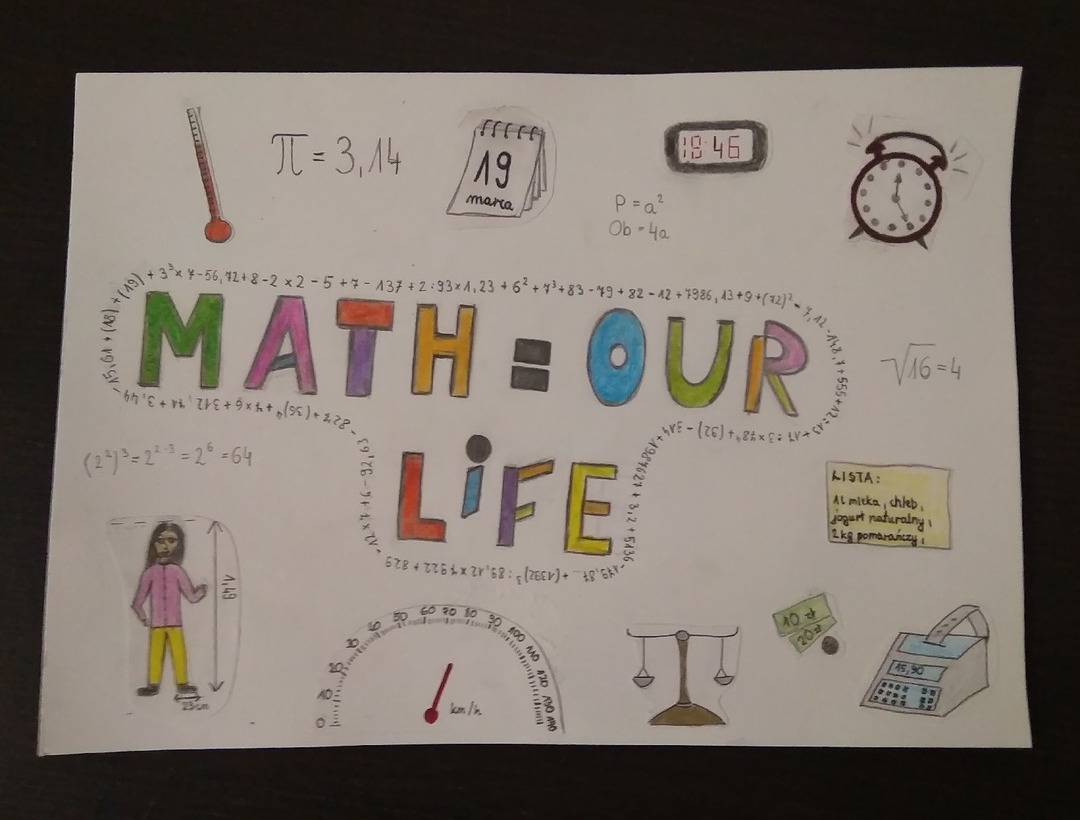 π = 3,14
19
marca
19:46
P = a²
Ob = 4a
+ 3³ × 7 - 56,72 + 8 - 2 × 2 - 5 + 7 - 137 + 2 : 93 × 1,23 + 6² + 7³ + 83 - 79 + 82 - 12 + 7986,13 + 9 + (72)²
MATH = OUR
LiFE
√16 = 4
(2²)³ = 2²·³ = 2⁶ = 64
LISTA:
1L mleka, chleb,
jogurt naturalny,
2 kg pomarańczy,
1,49
23 cm
0 10 20 30 40 50 60 70 80 90 100 110 120 130 140
km/h
10 zł
20 zł
15,90